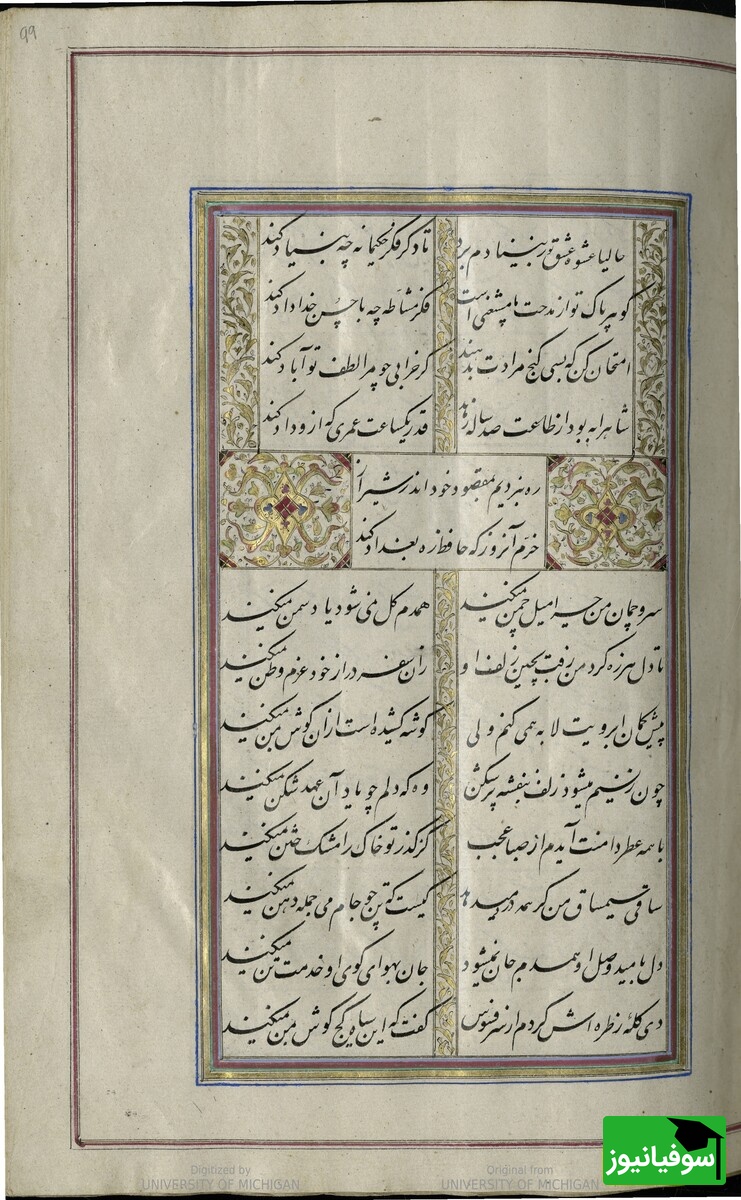 99
حالیا عشوه عشق تو ز بنیادم برد
تا دگر فکر حکیمانه چه بنیاد کند
گوهر پاک تو از مدحت ما مستغنی است
فکر مشاطه چه با حسن خداداد کند
امتحان کن که بسی گنج مرادت بدهند
گر خرابی چو مرا لطف تو آباد کند
شاه را به بود از طاعت صد ساله زهد
قدر یکساعت عمری که ازو داد کند
ره نبردیم بمقصود خود اندر شیراز
خرم آنروز که حافظ ره بغداد کند
سرو چمان من چرا میل چمن نمیکند
همدم گل نمی شود یاد سمن نمیکند
تا دل هرزه گرد من رفت بچین زلف او
زان سفر دراز خود عزم وطن نمیکند
پیش کمان ابرویت لابه همی کنم ولی
گوشه کشیده است ازان گوش بمن نمیکند
چون ز نسیم میشود زلف بنفشه پرشکن
وه که دلم چو یاد آن عهد شکن نمیکند
با همه عطر دامنت آیدم از صبا عجب
کز گذر تو خاک را مشک ختن نمیکند
ساقی سیم ساق من گر همه درد میدهد
کیست که تن چو جام می جمله دهن نمیکند
دل بامید وصل او همدم جان نمیشود
جان بهوای کوی او خدمت تن نمیکند
دی گله ز طره اش کردم از سر فسوس
گفت که این سیاه کج گوش بمن نمیکند
Digitized by
UNIVERSITY OF MICHIGAN
Original from
UNIVERSITY OF MICHIGAN
سوفیانیوز